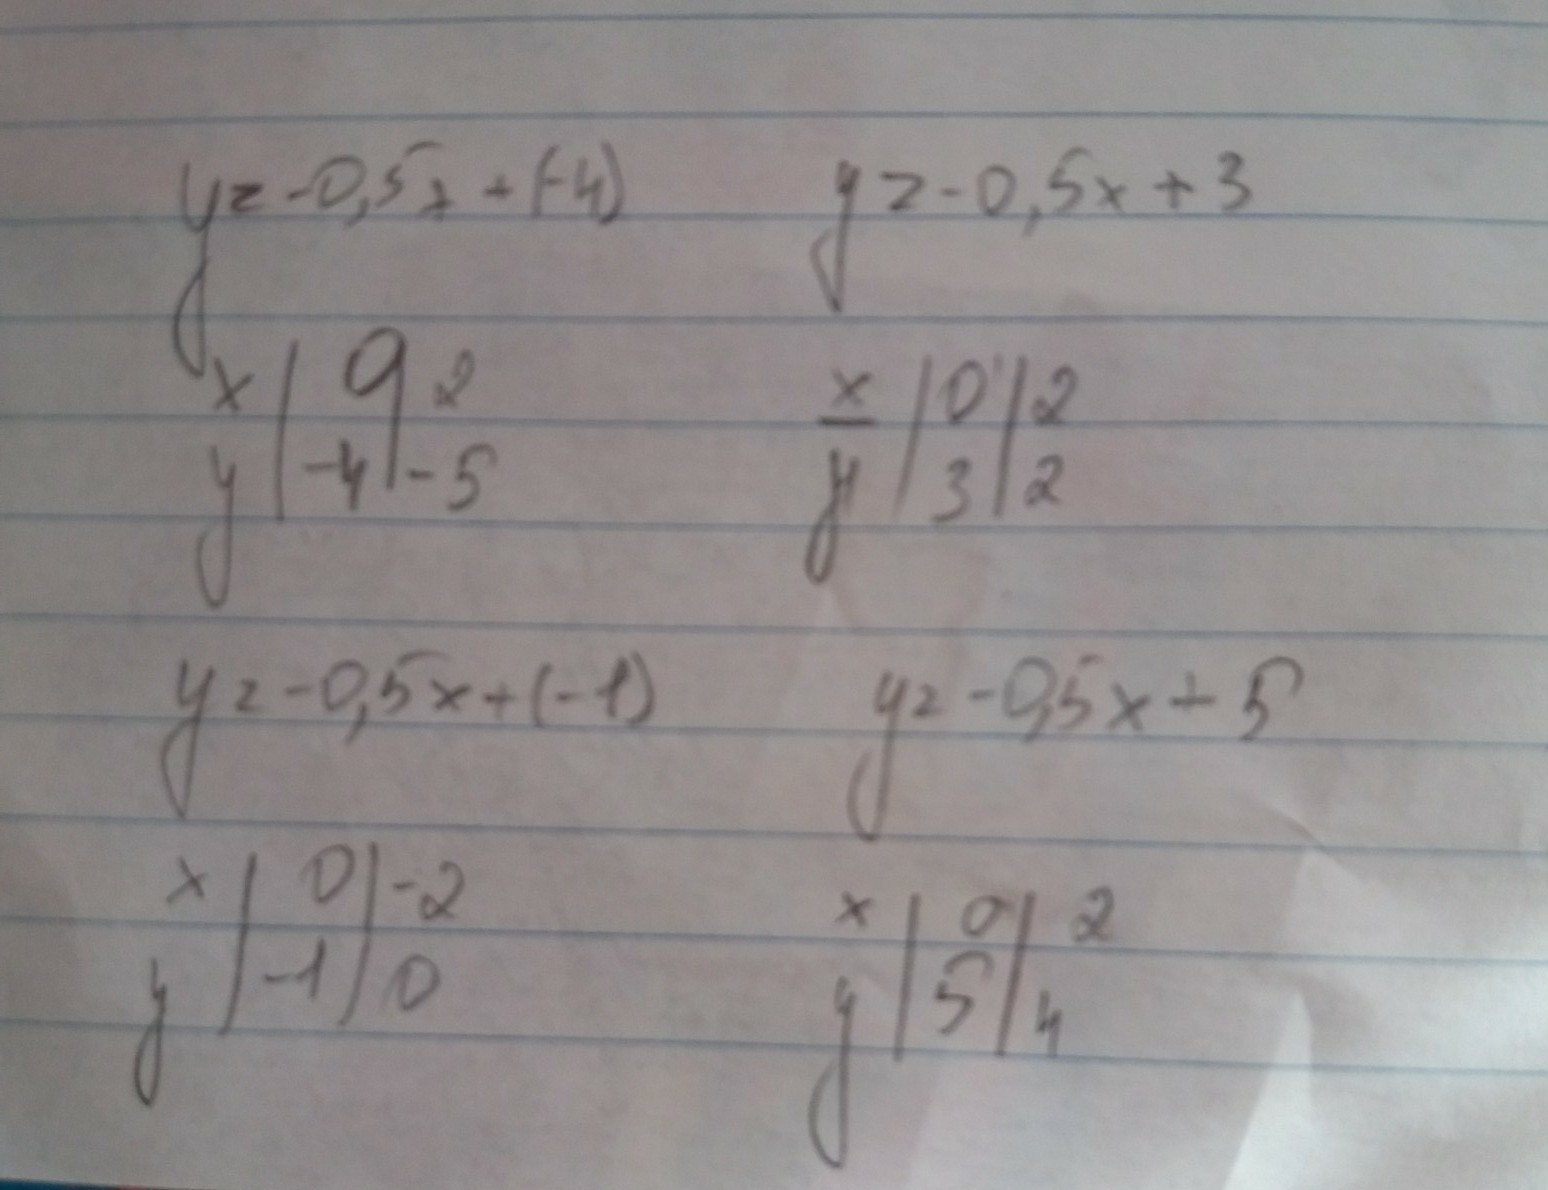 y = -0,5x + (-4)    y = -0,5x + 3
x | 0 | 2    x | 0 | 2
y | -4 | -5    y | 3 | 2
y = -0,5x + (-1)    y = -0,5x + 5
x | 0 | -2    x | 0 | 2
y | -1 | 0    y | 5 | 4